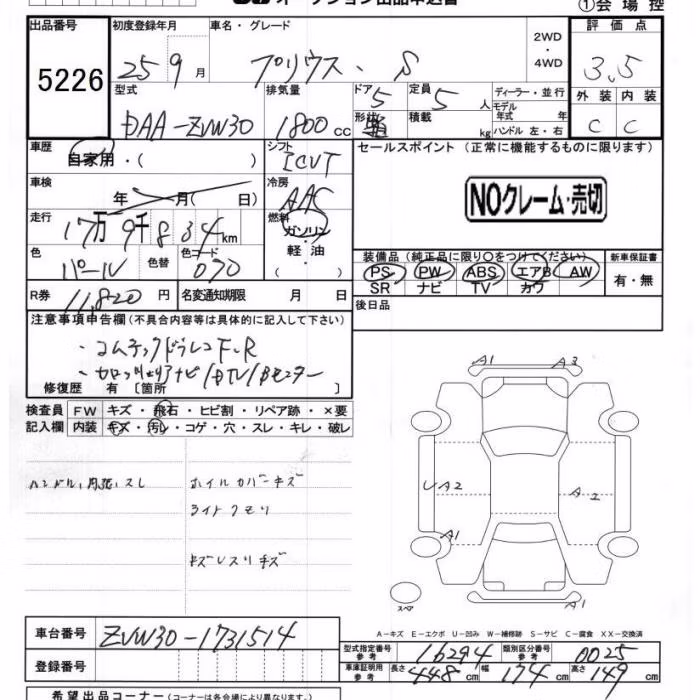 オークション出品申込書
①会場控
出品番号 初度登録年月 車名・グレード 2WD・4WD 評価点
5226 25 9月 プリウス・S 3.5
型式 排気量 ドア 5 定員 5人 ディーラー・並行 外装 内装
モデル年式 年
DAA-ZVW30 1800cc 形状 積載 kg ハンドル 左・右 C C
車歴 自家用・( ) シフト ICVT セールスポイント (正常に機能するものに限ります)
車検 年 月( 日) 冷房 AAC
NOクレーム・売切
走行 17万9千834km 燃料 ガソリン・軽油・( )
色 パール 色替 色コード 070
装備品 (純正品に限り○をつけてください) 新車保証書
PS PW ABS エアB AW 有・無
SR ナビ TV カワ
R券 11,820円 名変通知期限 月 日 後日品
注意事項申告欄 (不具合内容等は具体的に記入して下さい)
・コムテックドラレコF・R
修復歴 有 [箇所
検査員記入欄 FW キズ・飛石・ヒビ割・リペア跡・×要
内装 キズ・汚レ・コゲ・穴・スレ・キレ・破レ
A1 A3
ハンドル,内張,スレ ホイルカバーキズ
ライトクモリ
UA2 A2
A1
キズレスリキズ
スペア
A1
A-キズ E-エクボ U-凹み W-補修跡 S-サビ C-腐食 XX-交換済
車台番号 ZVW30-1731514
型式指定番号 参考 16294 類別区分番号 参考 0025
登録番号 車庫証明用 参考 長さ 448cm 幅 174cm 高さ 149cm
希望出品コーナー (コーナーは各会場により異なります。)